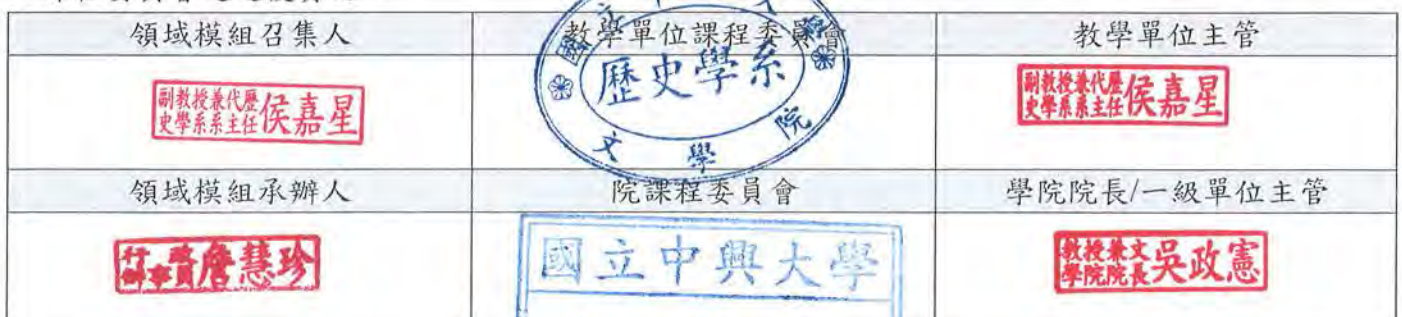 領域模組召集人 教學單位課程委員會 教學單位主管
副教授兼代歷
史學系系主任 侯嘉星
國立中
文學院
歷史學系
副教授兼代歷
史學系系主任 侯嘉星
領域模組承辦人 院課程委員會 學院院長/一級單位主管
行政
辦事員 詹慧珍
國立中興大學
教授兼文
學院院長 吳政憲